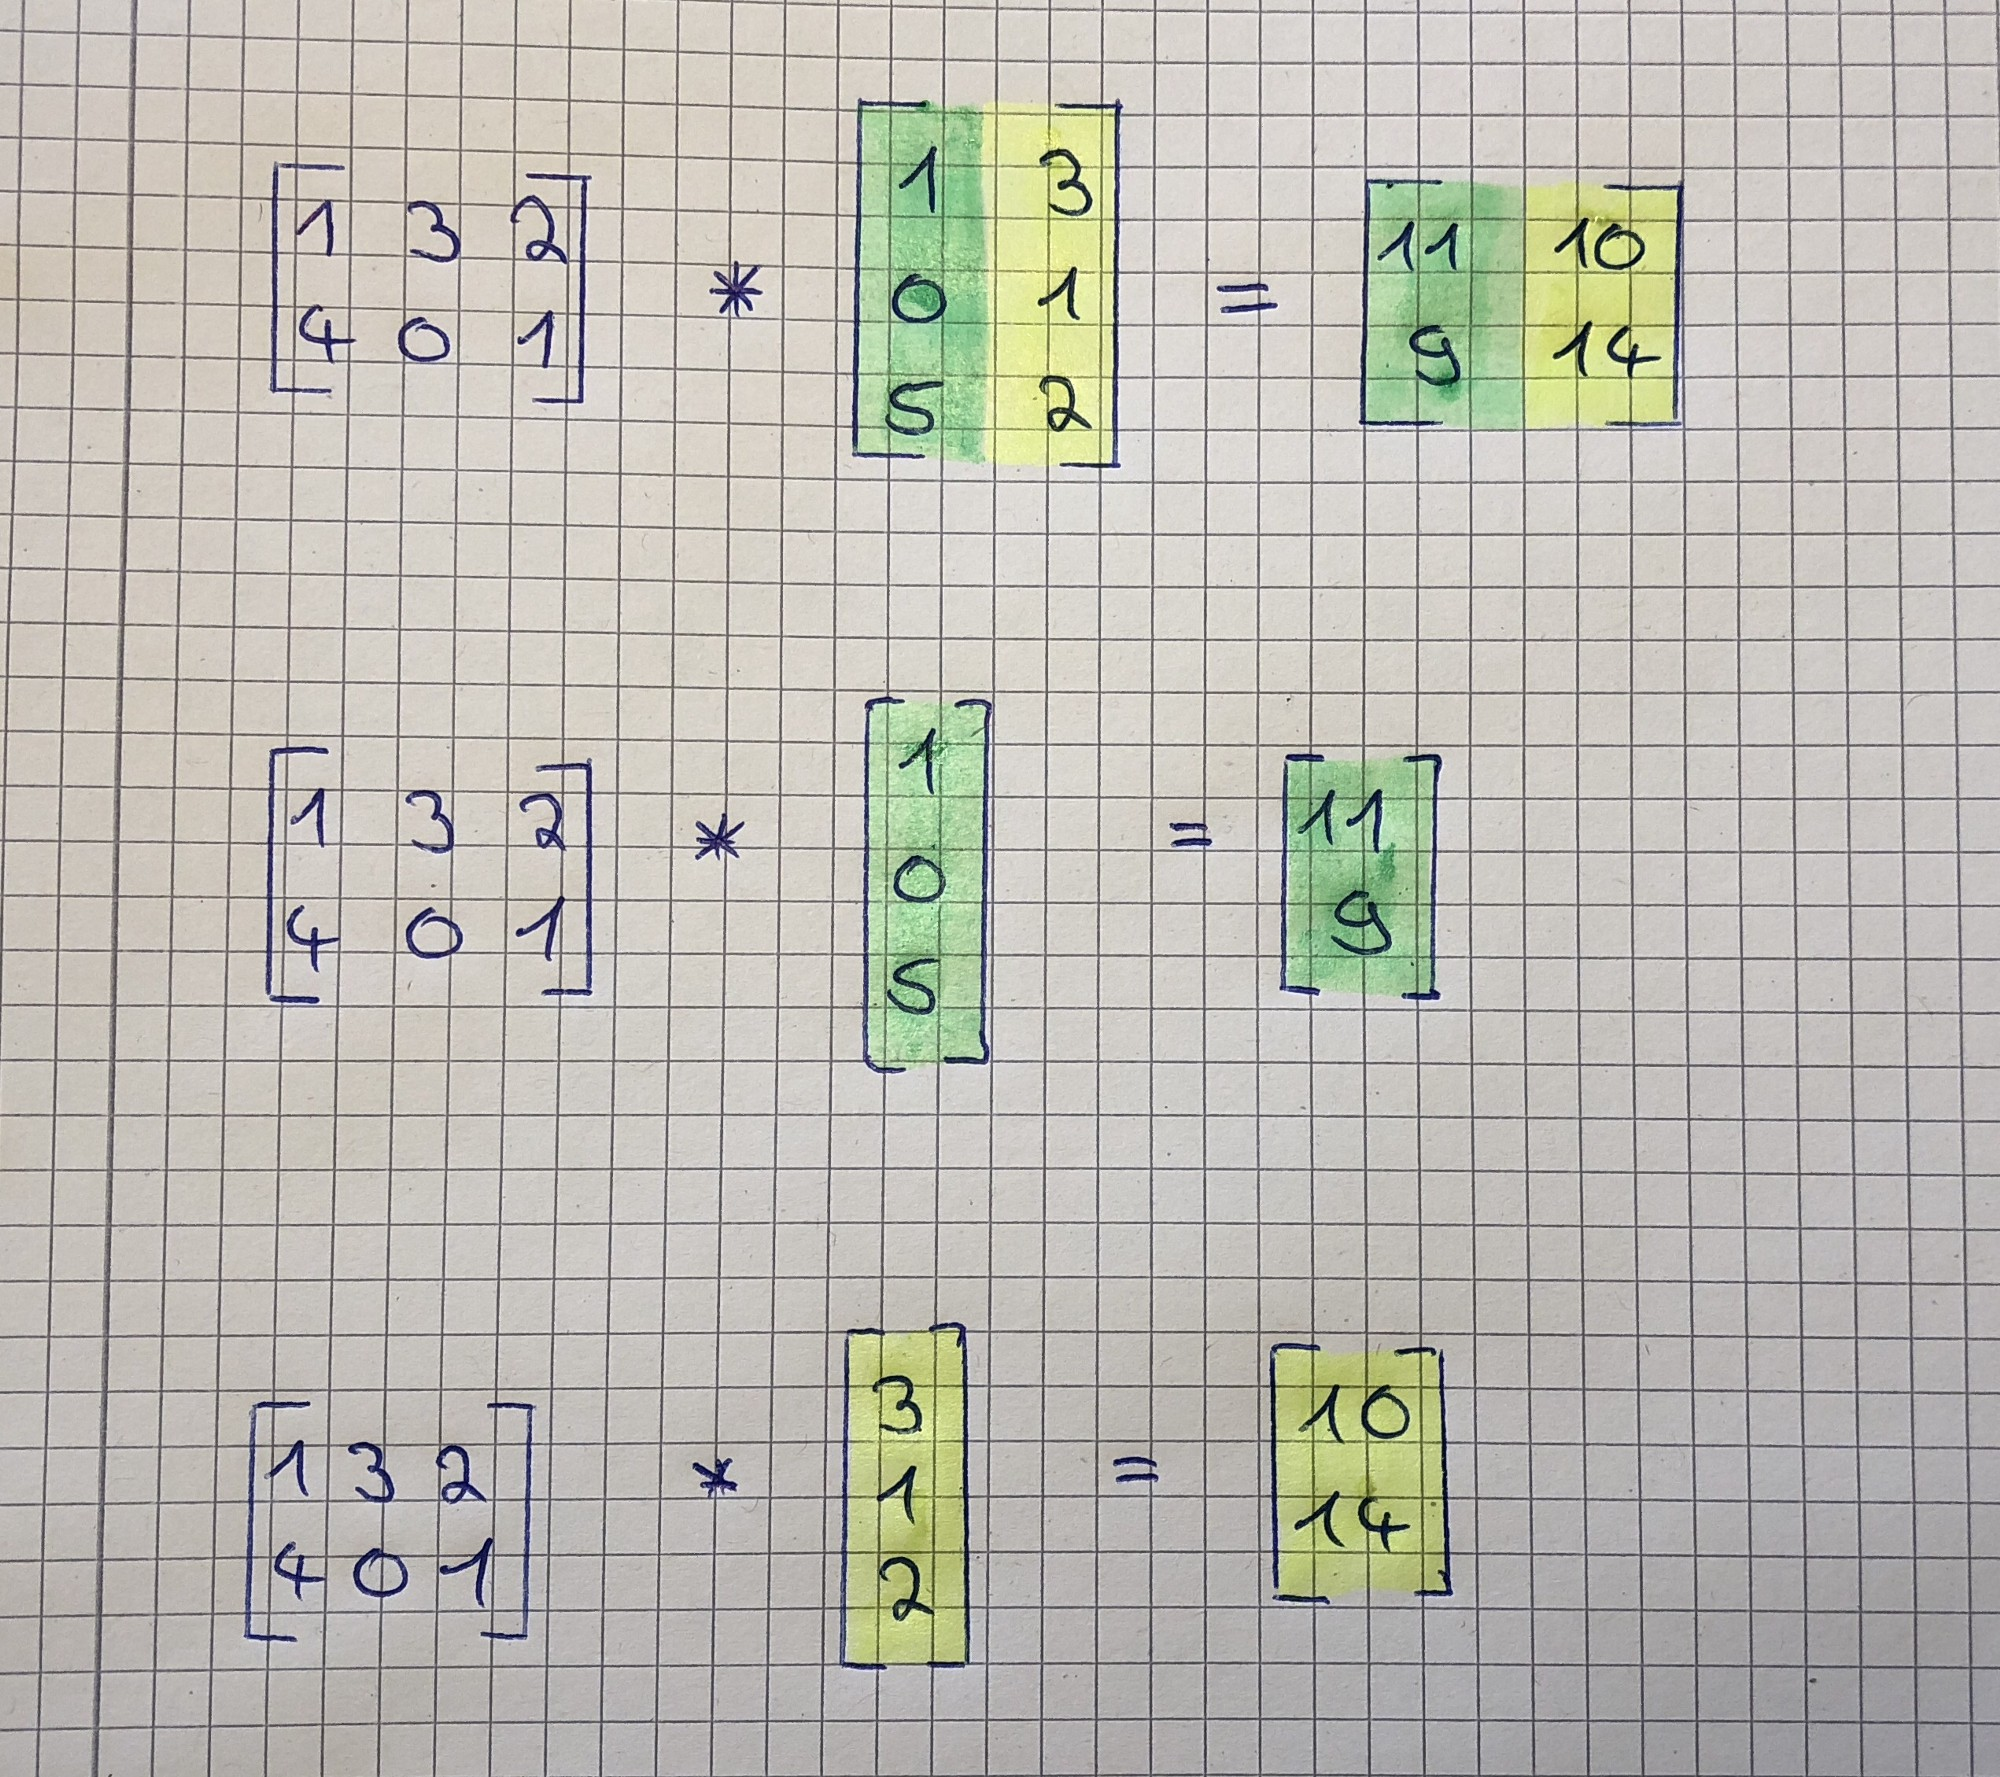 [1 3 2
4 0 1] * [1 3
0 1
5 2] = [11 10
9 14]
[1 3 2
4 0 1] * [1
0
5] = [11
9]
[1 3 2
4 0 1] * [3
1
2] = [10
14]